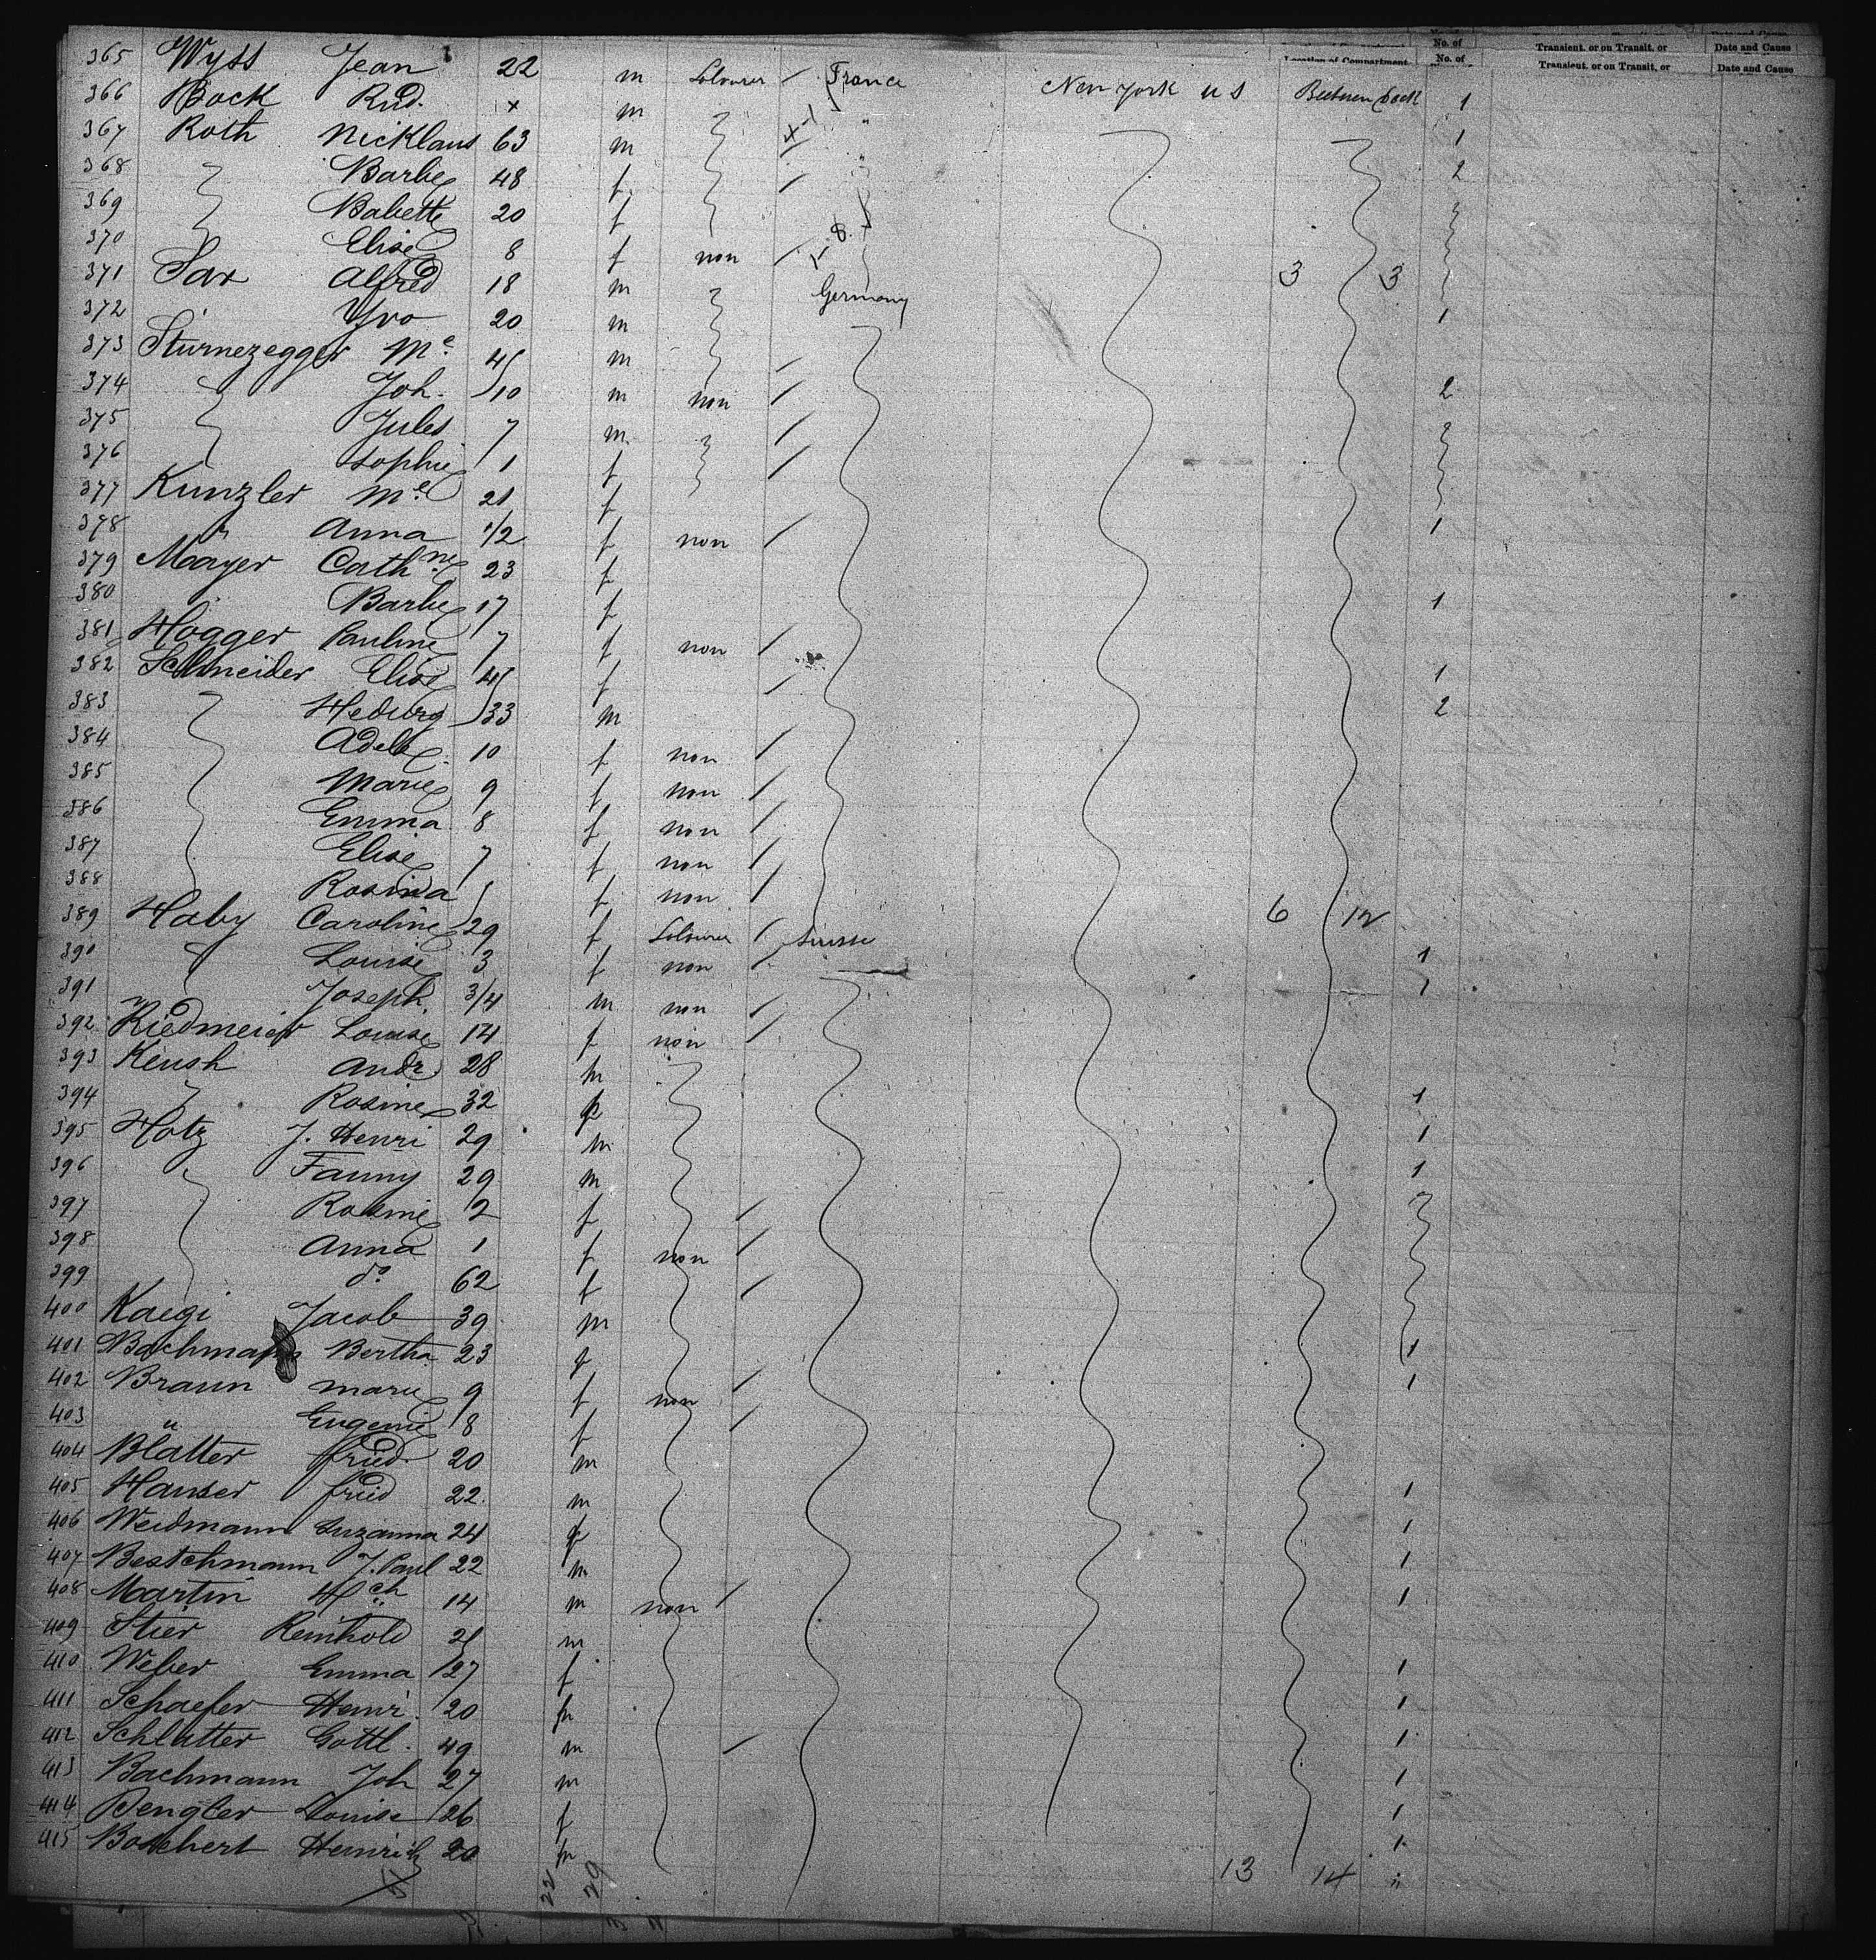 No. of Transient, or on Transit, or Date and Cause
Location of Compartment. No. of Transient, or on Transit, or Date and Cause
365 Wyss Jean 22 m Labourer / France New York U S Between Deck 1
366 Bock Rud. x m " 1
367 Roth Nicklaus 63 m / " 2
368 Barbe 48 f /
369 Babette 20 f
370 Elise 8 f non /
371 Sax Alfred 18 m Germany 3 3
372 Yvo 20 m 1
373 Sturnezegger Me. 45 m /
374 Joh. 10 m non / 2
375 Jules 7 m /
376 Sophie 1 f /
377 Kunzler Me. 21 f
378 " Anna 1/2 f non / 1
379 Mayer Cathne 23 f
380 Barbe 17 f 1
381 Hogger Pauline 7 f non /
382 Schneider Elisa 45 f / 1
383 Hedwig 33 m 2
384 Adele 10 f non /
385 Marie 9 f non /
386 Emma 8 f non /
387 Elise 7 f non /
388 Rosina f non /
389 Haby Caroline 29 f Labourer / Suisse 6 12
390 Louise 3 f non / 1
391 Joseph 3/4 m non /
392 Riedmeier Louise 14 f non /
393 Keush Andr. 28 m
394 Rosine 32 f 1
395 Hotz J. Henri 29 m 1
396 Fanny 29 m 1
397 Rosine 2 f /
398 Anna 1 f non /
399 do 62 f /
400 Kaegi Jacob 39 m
401 Bachmann Bertha 23 f 1
402 Braun Marie 9 f non / 1
403 " Eugenie 8 f /
404 Blatter fried. 20 m
405 Hauser fried 22 m 1
406 Weidmann Suzanna 24 f 1
407 Bestchmann J. Paul 22 m 1
408 Martin Hch 14 m non / 1
409 Stier Reinhold 21 m
410 Weber Emma 27 f 1
411 Schaefer Henri. 20 m 1
412 Schlatter Gottl. 49 m / 1
413 Bachmann Joh 27 m 1
414 Dengler Louise 26 f 1
415 Boschert Heinrich 20 m 1
22 29 13 14 "